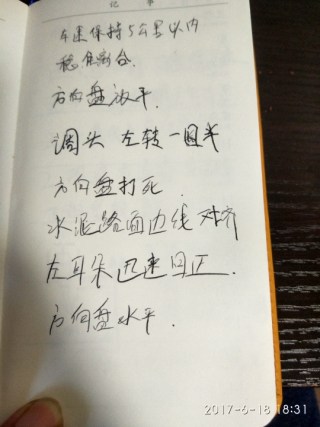 记事
车速保持5公里以内
稳住离合.
方向盘放平.
调头 左转一圈半
方向盘打死.
水泥路面边线 对齐
左耳朵迅速回正.
方向盘水平.
2017-6-18 18:31